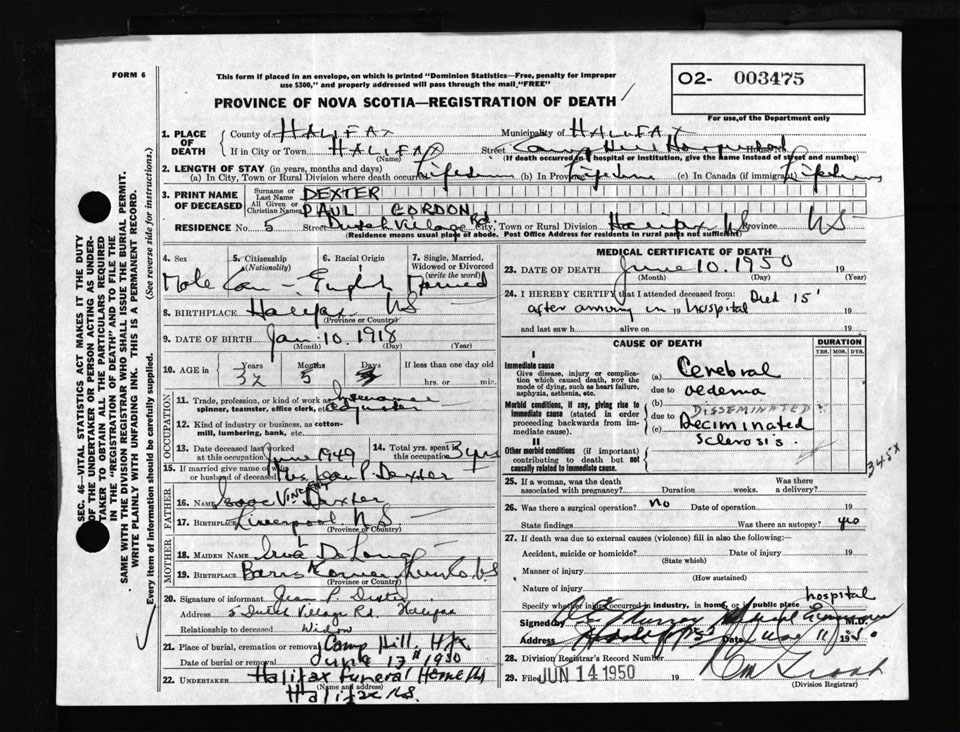 FORM 6
This form if placed in an envelope, on which is printed "Dominion Statistics—Free, penalty for improper
use $300," and properly addressed will pass through the mail "FREE"
O2- 003475
For use of the Department only
PROVINCE OF NOVA SCOTIA—REGISTRATION OF DEATH
SEC. 46-VITAL STATISTICS ACT MAKES IT THE DUTY
OF THE UNDERTAKER OR PERSON ACTING AS UNDER-
TAKER TO OBTAIN ALL THE PARTICULARS REQUIRED
IN THE "REGISTRATION OF DEATH" AND TO FILE THE
SAME WITH THE DIVISION REGISTRAR WHO SHALL ISSUE THE BURIAL PERMIT.
WRITE PLAINLY WITH UNFADING INK. THIS IS A PERMANENT RECORD.
Every item of information should be carefully supplied. (See reverse side for instructions.)
1. PLACE OF DEATH County of HALIFAX Municipality of HALIFAX
If in City or Town HALIFAX Street Camp Hill Hospital House No.
(Name) (If death occurred in a hospital or institution, give the name instead of street and number)
2. LENGTH OF STAY (in years, months and days)
(a) In City, Town or Rural Division where death occurred Lifetime (b) In Province Lifetime (c) In Canada (if immigrant) Lifetime
3. PRINT NAME OF DECEASED Surname or Last Name DEXTER
All Given or Christian Names PAUL GORDON
RESIDENCE No. 5 Street Dutch Village Rd. City, Town or Rural Division Halifax NS Province NS
(Residence means usual place of abode. Post Office Address for residents in rural parts not sufficient)
4. Sex 5. Citizenship (Nationality) 6. Racial Origin 7. Single, Married, Widowed or Divorced (write the word)
Male Can - English Married
8. BIRTHPLACE Halifax NS
(Province or Country)
9. DATE OF BIRTH Jan. 10. 1918
(Month) (Day) (Year)
10. AGE in Years Months Days If less than one day old
32 5 hrs. or min.
OCCUPATION
11. Trade, profession or kind of work as spinner, teamster, office clerk, etc. Insurance adjuster
12. Kind of industry or business, as cotton-mill, lumbering, bank, etc.
13. Date deceased last worked at this occupation June 1949 14. Total yrs. spent in this occupation 3 yrs
15. If married give name of wife or husband of deceased Mrs. Jean P. Dexter
FATHER
16. Name Isaac VINCENT Dexter
17. Birthplace Liverpool NS
(Province or Country)
MOTHER
18. MAIDEN NAME DeLong
19. BIRTHPLACE NS
(Province or Country)
20. Signature of informant Jean P. Dexter
Address 5 Dutch Village Rd Halifax
Relationship to deceased Widow
21. Place of burial, cremation or removal Camp Hill, Hfx
Date of burial or removal June 13" 1950
22. UNDERTAKER Halifax Funeral Home
(Name and address)
Halifax NS.
MEDICAL CERTIFICATE OF DEATH
23. DATE OF DEATH June 10. 1950 19
(Month) (Day) (Year)
24. I HEREBY CERTIFY that I attended deceased from: Died 15'
after arriving in 19 hospital 19
and last saw h alive on 19
CAUSE OF DEATH DURATION
YRS. MOS. DYS.
I
Immediate cause
Give disease, injury or complication which caused death, NOT the mode of dying, such as heart failure, asphyxia, asthenia, etc.
(a) Cerebral
due to oedema
Morbid conditions, if any, giving rise to immediate cause (stated in order proceeding backwards from immediate cause).
(b)
due to DISSEMINATED
(c) Deciminated
Sclerosis.
II
Other morbid conditions (if important) contributing to death but not causally related to immediate cause.
345x
25. If a woman, was the death associated with pregnancy? Duration weeks. Was there a delivery?
26. Was there a surgical operation? No Date of operation 19
State findings Was there an autopsy? yes
27. If death was due to external causes (violence) fill in also the following:
Accident, suicide or homicide? Date of injury 19
(State which)
Manner of injury
(How sustained)
Nature of injury
Specify whether injury occurred in industry, in home, or in public place hospital
Signed by M.D.
Address Date 11
28. Division Registrar's Record Number
29. Filed JUN 14 1950 19
(Division Registrar)